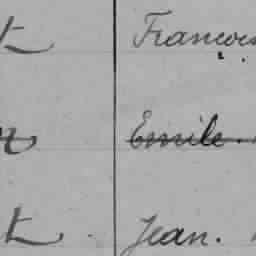 t François
Emile
t Jean.